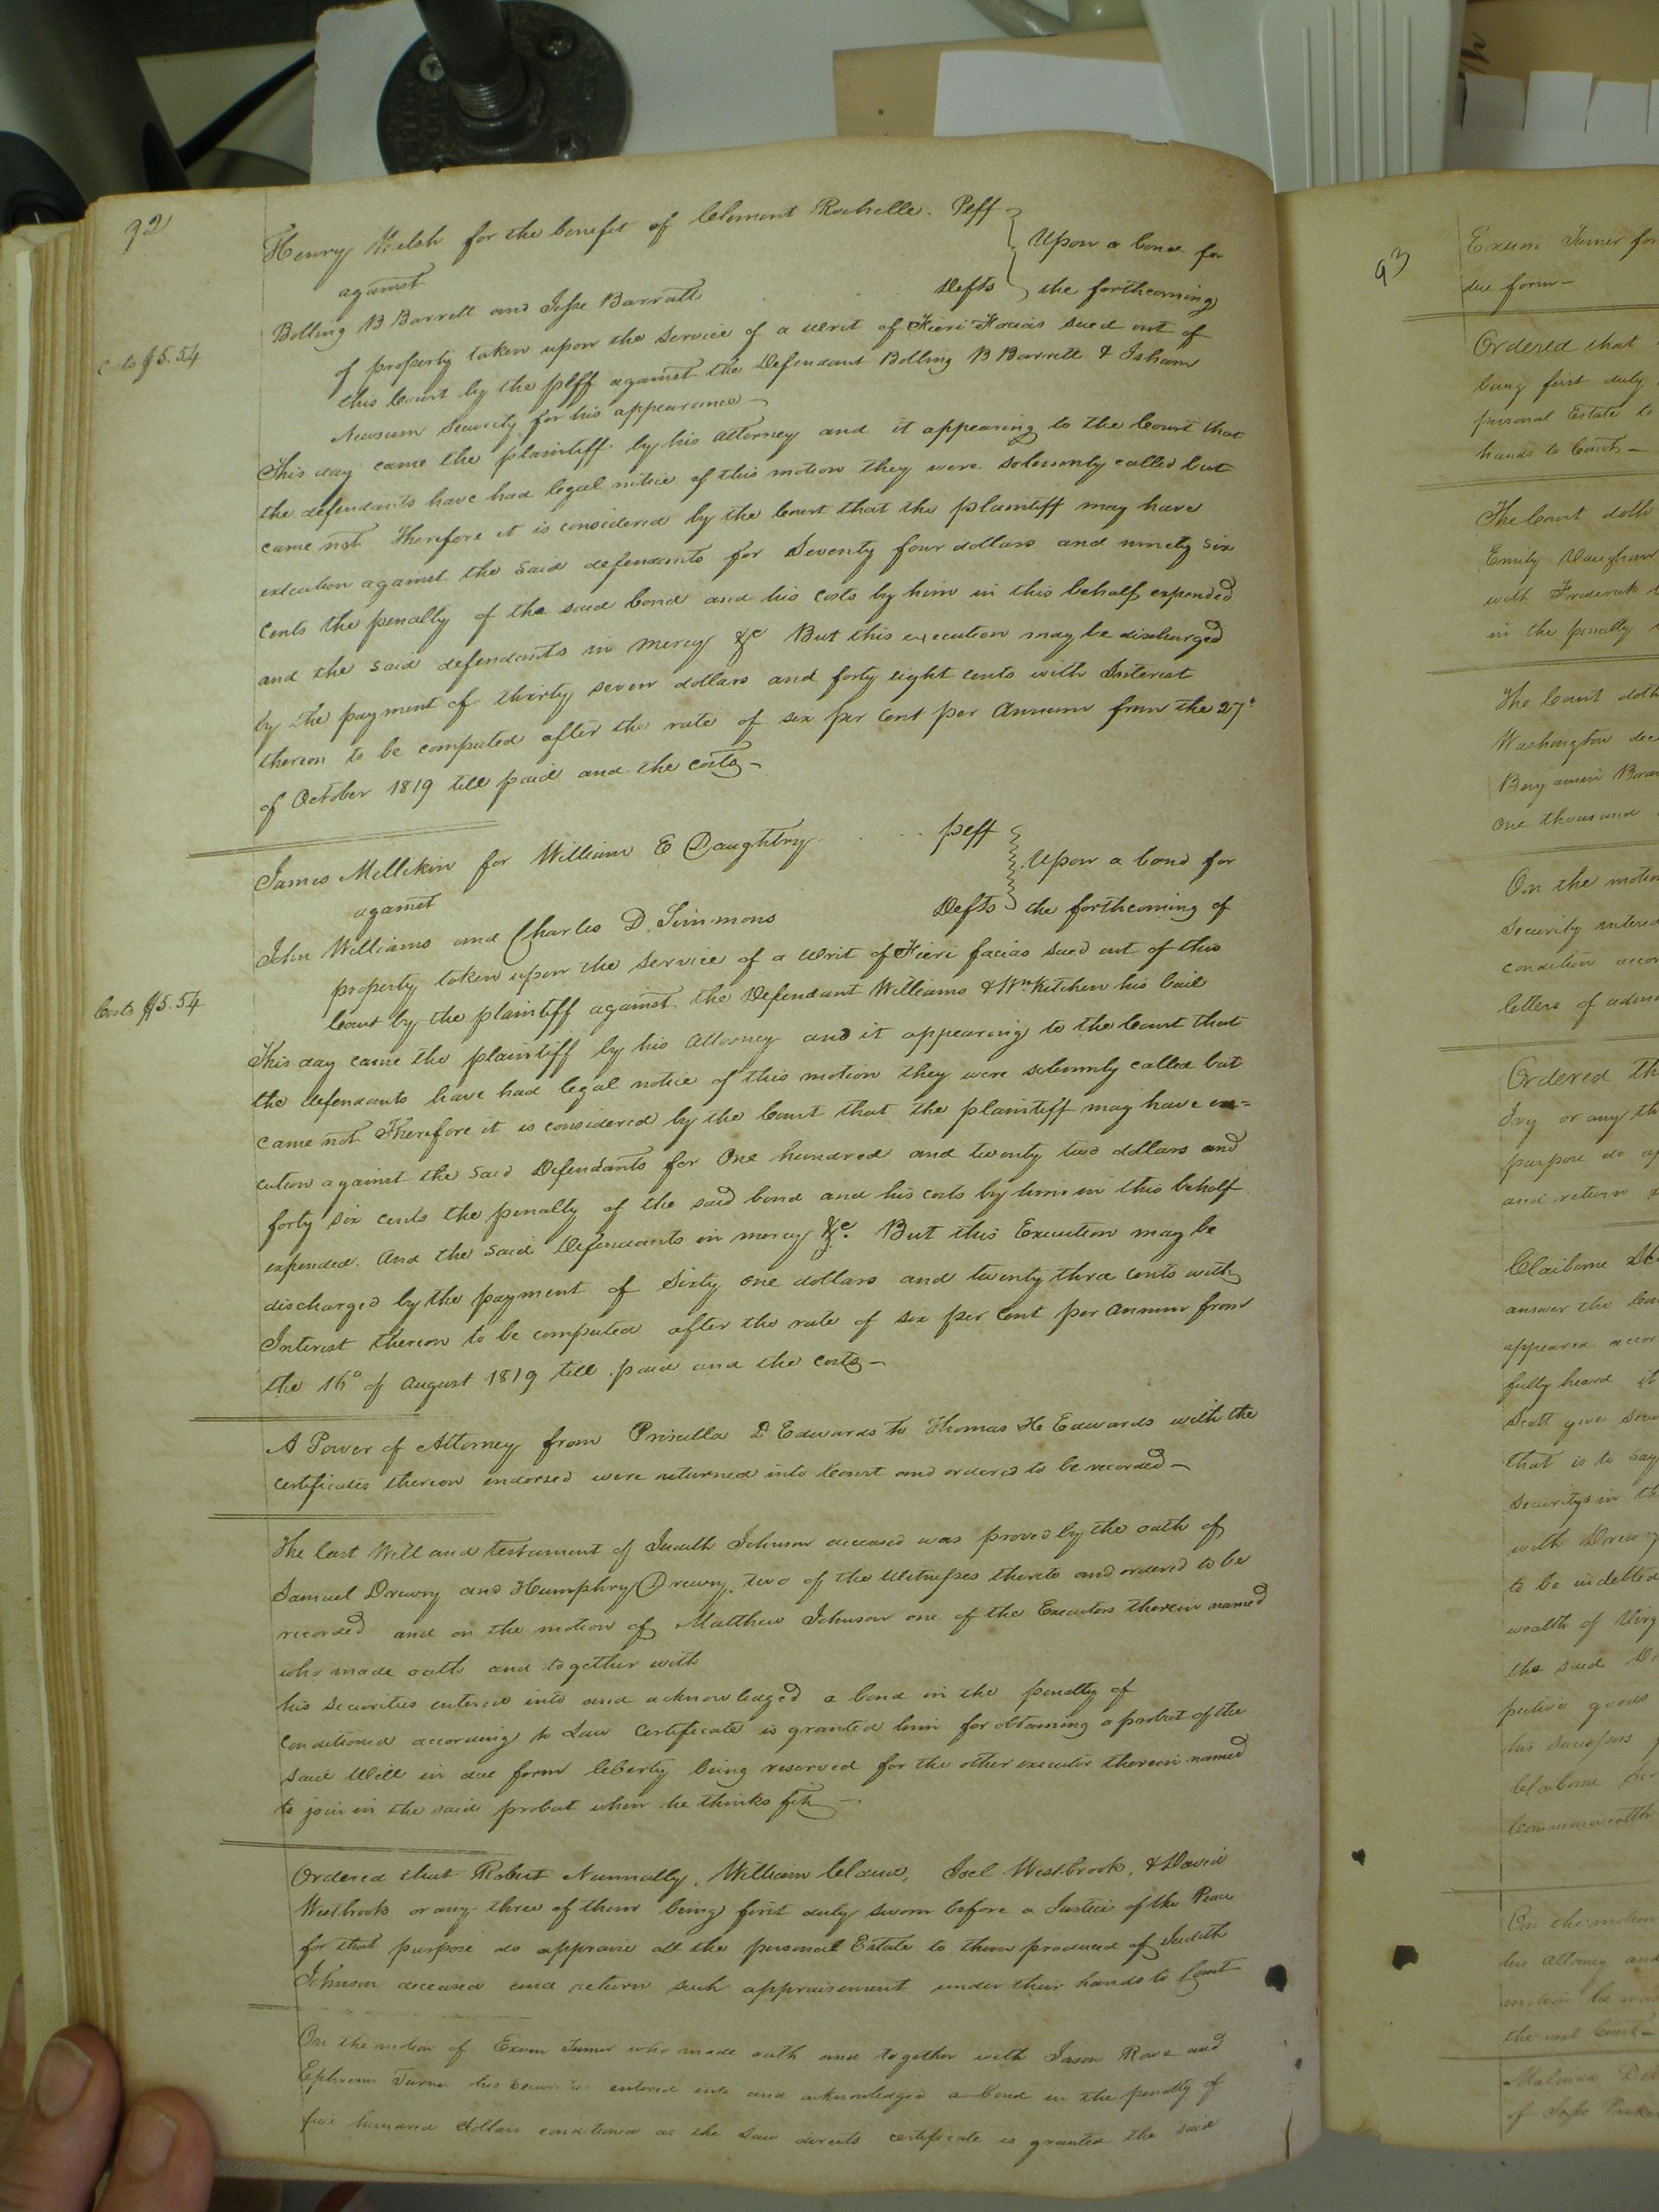 92
Henry Welsh for the benefit of Clement Rochelle. Plff
against
Upon a bond for
Bolling B Barrett and Jesse Barratt Defts the forthcoming
Costs $5.54
of property taken upon the service of a writ of Fieri Facias sued out of
this Court by the plff against the Defendant Bolling B Barrett & Isham
Newsum Security for his appearance —
This day came the plaintiff by his attorney and it appearing to the Court that
the defendants have had legal notice of this motion they were solemnly called but
came not Therefore it is considered by the Court that the plaintiff may have
execution against the said defendants for Seventy four dollars and ninety six
Cents the penalty of the said bond and his costs by him in this behalf expended
and the said defendants in mercy &c But this execution may be discharged
by the payment of thirty seven dollars and forty eight cents with Interest
thereon to be computed after the rate of six per Cent per Annum from the 27°
of October 1819 till paid and the costs —
James Millikin for William E Daughtry plff
against
Upon a bond for
John Williams and Charles D. Simmons Defts the forthcoming of
property taken upon the service of a writ of Fieri facias sued out of this
Costs $5.54
Court by the plaintiff against the Defendant Williams & Wm Kitchen his bail
This day came the plaintiff by his Attorney and it appearing to the Court that
the defendants have had legal notice of this motion they were solemnly called but
came not Therefore it is considered by the Court that the plaintiff may have exe=
cution against the said Defendants for One hundred and twenty two dollars and
forty six cents the penalty of the said bond and his costs by him in this behalf
expended. And the said Defendants in mercy &c. But this Execution may be
discharged by the payment of Sixty one dollars and twenty three cents with
Interest thereon to be computed after the rate of six per Cent per annum from
the 16° of August 1819 till paid and the costs —
A Power of Attorney from Priscilla D Edwards to Thomas H Edwards with the
certificates thereon endorsed were returned into Court and ordered to be recorded —
The last Will and testament of Judith Johnson deceased was proved by the oath of
Samuel Drewry and Humphry Drewry two of the Witnesses thereto and ordered to be
recorded and on the motion of Matthew Johnson one of the Executors therein named
who made oath and together with
his securities entered into and acknowledged a bond in the penalty of
conditioned according to Law Certificate is granted him for obtaining a probat of the
said Will in due form liberty being reserved for the other executor therein named
to join in the said probat when he thinks fit —
Ordered that Robert Nunnally, William Claud, Joel Westbrook, & David
Westbrook or any three of them being first duly sworn before a Justice of the Peace
for that purpose do appraise all the personal Estate to them produced of Judith
Johnson deceased and return such appraisement under their hands to Court
On the motion of Exum Turner who made oath and together with Jason Rowe and
Ephraim Turner his securities entered into and acknowledged a bond in the penalty of
five hundred dollars conditioned as the Law directs certificate is granted the said
93
Exum Turner for
due form —
Ordered that
being first duly
personal Estate to
hands to Court —
The Court doth
Emily Vaughan
with Frederick
in the penalty
The Court doth
Washington dec
Benjamin
one thousand
On the motion
Security entered
condition accor
letters of admi
Ordered th
Ivy or any th
purpose do ap
and return
Claiborne
answer the
appeared accor
fully heard it
Scott give secu
that is to say
securitys in th
with Drewry
to be indebted
wealth of Virg
the said
pective goods
his Successors
Claiborne
Commonwealth
On the motion
his attorney and
motion he was
the next Court —
Malinda
of